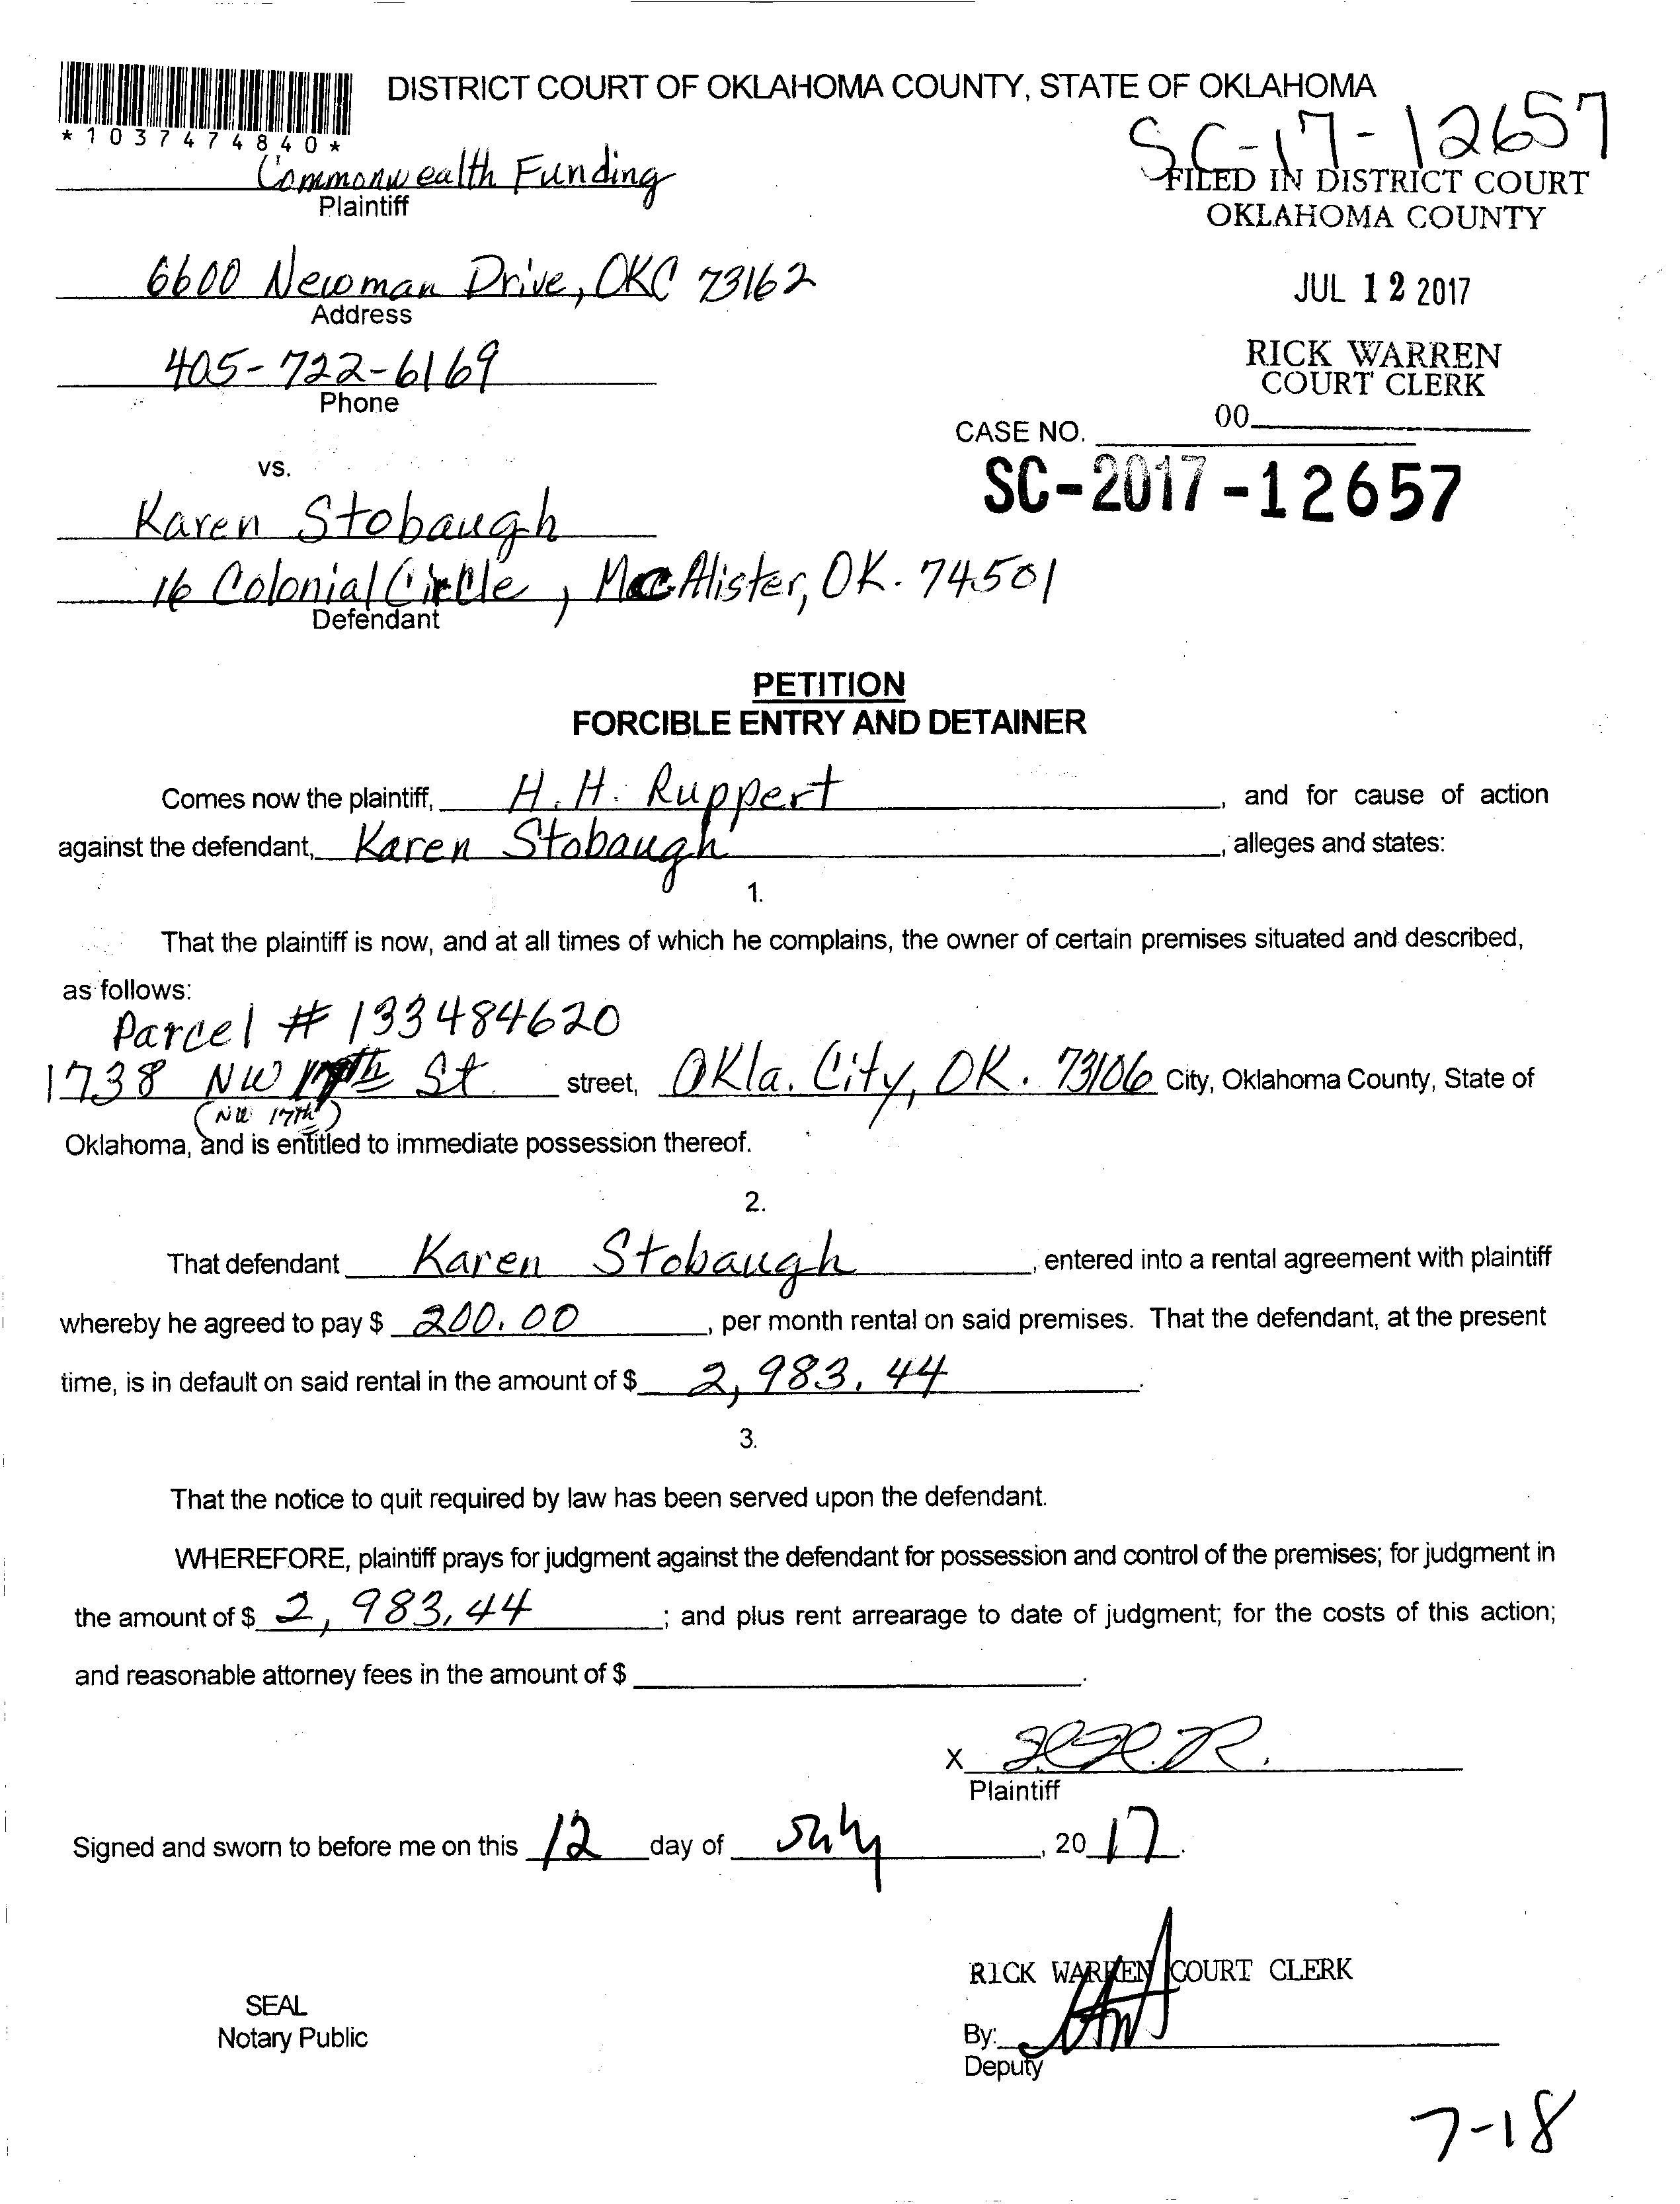 DISTRICT COURT OF OKLAHOMA COUNTY, STATE OF OKLAHOMA
*1037474840*
SC-17-12657
Commonwealth Funding
Plaintiff
FILED IN DISTRICT COURT
OKLAHOMA COUNTY
6600 Newman Drive, OKC 73162
Address
JUL 12 2017
405-722-6169
Phone
RICK WARREN
COURT CLERK
00
CASE NO.
SC-2017-12657
vs.
Karen Stobaugh
16 Colonial Circle, McAlister, OK. 74501
Defendant
PETITION
FORCIBLE ENTRY AND DETAINER
Comes now the plaintiff, H. H. Ruppert, and for cause of action
against the defendant, Karen Stobaugh, alleges and states:
1.
That the plaintiff is now, and at all times of which he complains, the owner of certain premises situated and described,
as follows:
Parcel # 133484620
1738 NW 17th St. street, Okla. City, OK. 73106 City, Oklahoma County, State of
(NW 17th)
Oklahoma, and is entitled to immediate possession thereof.
2.
That defendant Karen Stobaugh, entered into a rental agreement with plaintiff
whereby he agreed to pay $ 200.00, per month rental on said premises. That the defendant, at the present
time, is in default on said rental in the amount of $ 2,983.44.
3.
That the notice to quit required by law has been served upon the defendant.
WHEREFORE, plaintiff prays for judgment against the defendant for possession and control of the premises; for judgment in
the amount of $ 2,983.44; and plus rent arrearage to date of judgment; for the costs of this action;
and reasonable attorney fees in the amount of $ .
X H.H.R.
Plaintiff
Signed and sworn to before me on this 12 day of July, 2017.
RICK WARREN COURT CLERK
SEAL
Notary Public
By:
Deputy
7-18